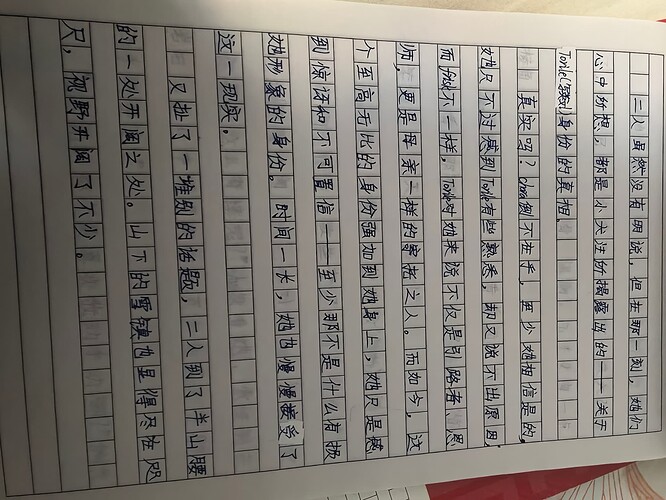 二人虽然没有明说，但在那一刻，她们
心中所想，都是小犬注所揭露出的——关于
Torile身份的真相。
真实吗？倒不在乎，至少她相信是的，
她只不过感到Torile有些熟悉，却又说不出原因，
而不一样，Torile对她来说不仅是引路者、恩
师，更是母亲一样的寄托之人。而如今，这
个至高无比的身份强加到她身上，她只是感
到惊讶和不可置信——至少那不是什么有损
她形象的身份。时间一长，她也慢慢接受了
这一现实。
又扯了一堆别的话题，二人到了半山腰
的一处开阔之处。山下的雪镇也显得尽在咫
尺，视野开阔了不少。